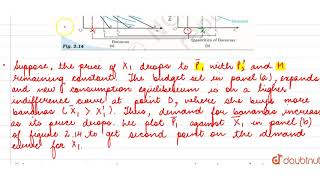 Bananas
(a)
Quantities of Bananas
(b)
Fig. 2.14
Suppose, the price of X1 drops to P̄1 with P2' and M
remaining constant. The budget set in panel (a), expands
and new consumption equilibrium is on a higher
indifference curve at point D, where she buys more
bananas (X̄1 > X1'). Thus, demand for bananas increases
as its price drops. We plot P̄1 against X̄1 in panel (b)
of figure 2.14 to get second point on the demand
curve for X1.
doubtnut